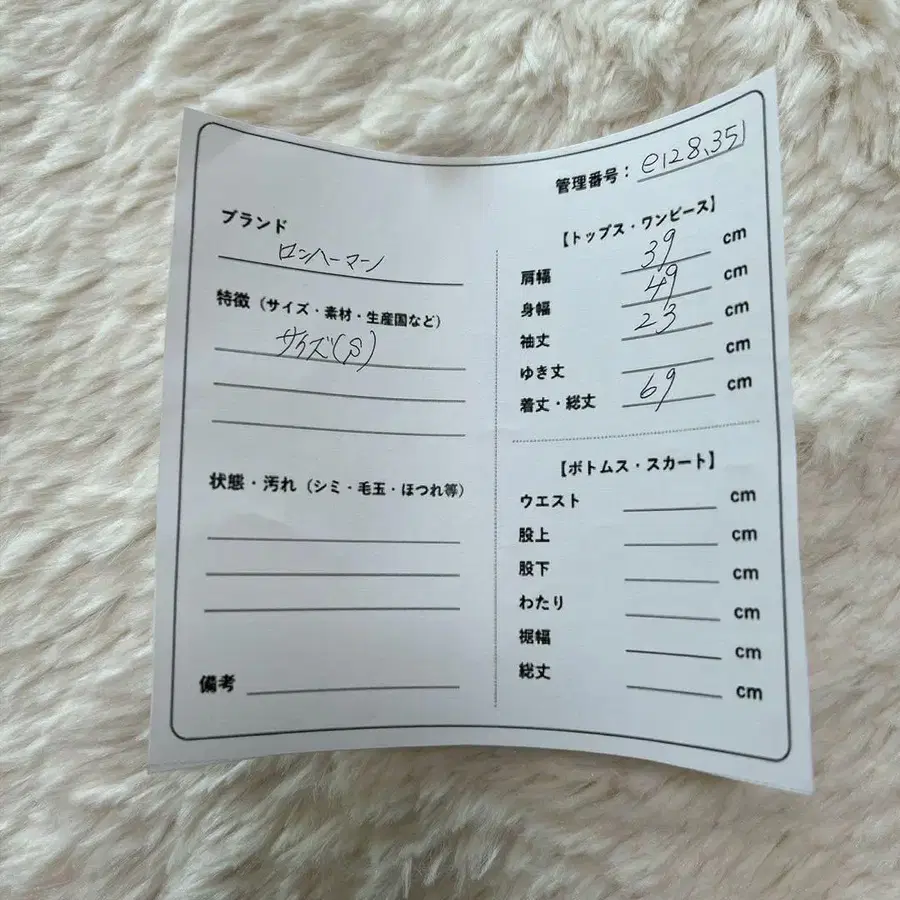 管理番号：e128,351
ブランド
ロンハーマン
特徴（サイズ・素材・生産国など）
サイズ(S)
状態・汚れ（シミ・毛玉・ほつれ等）
備考
【トップス・ワンピース】
肩幅 39 cm
身幅 49 cm
袖丈 23 cm
ゆき丈 cm
着丈・総丈 69 cm
【ボトムス・スカート】
ウエスト cm
股上 cm
股下 cm
わたり cm
裾幅 cm
総丈 cm